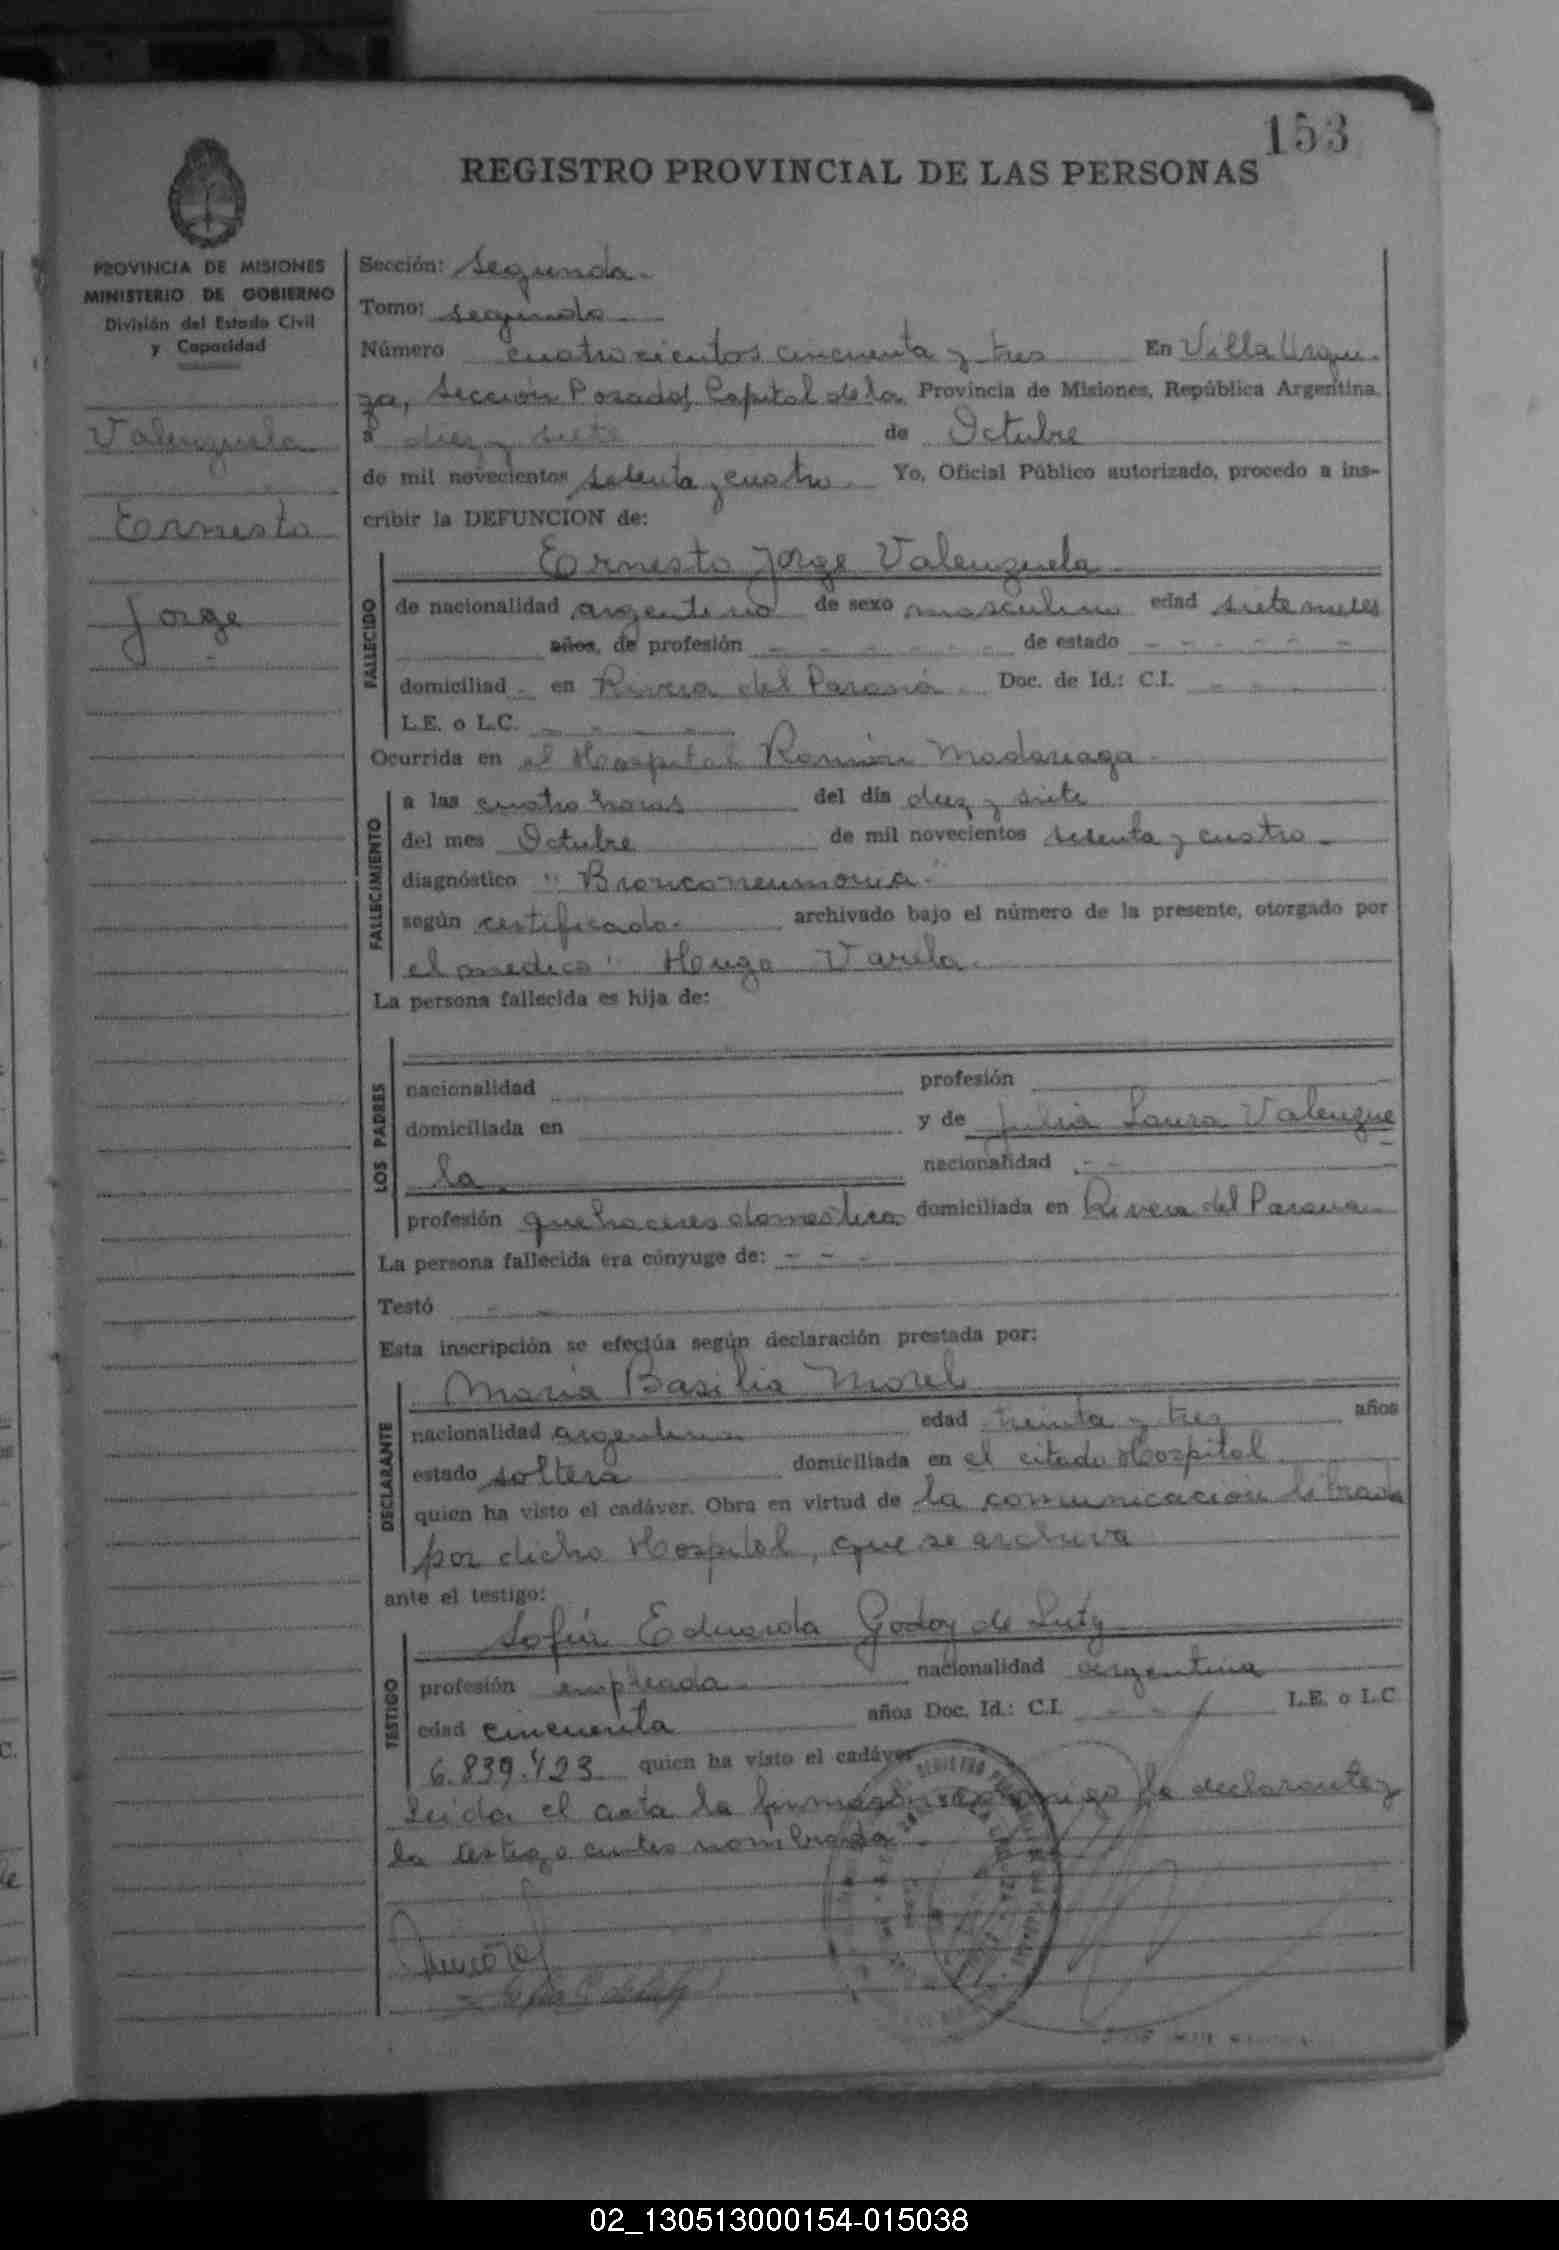 153
REGISTRO PROVINCIAL DE LAS PERSONAS
PROVINCIA DE MISIONES
MINISTERIO DE GOBIERNO
División del Estado Civil
y Capacidad
Valenzuela
Ernesto
Jorge
Sección: Segunda.
Tomo: segundo
Número cuatrocientos cincuenta y tres En Villa Urqui-
za, Sección Posadas Capital de la Provincia de Misiones, República Argentina,
a diez y siete de Octubre
de mil novecientos setenta y cuatro. Yo, Oficial Público autorizado, procedo a ins-
cribir la DEFUNCION de:
Ernesto Jorge Valenzuela
FALLECIDO
de nacionalidad argentino de sexo masculino edad siete meses
años, de profesión - - - - - - de estado - - - - - -
domiciliad - en Rivera del Paraná. Doc. de Id.: C.I. - -
L.E. o L.C. - - - -
Ocurrida en el Hospital Ramón Madariaga.
FALLECIMIENTO
a las cuatro horas del día diez y siete
del mes Octubre de mil novecientos setenta y cuatro.
diagnóstico "Bronconeumonia."
según certificado. archivado bajo el número de la presente, otorgado por
el medico" Hugo Varela.
La persona fallecida es hija de:
LOS PADRES
nacionalidad profesión
domiciliada en y de Julia Laura Valenzue
la nacionalidad - -
profesión quehaceres domestico domiciliada en Rivera del Parana.
La persona fallecida era cónyuge de: - - -
Testó - -
Esta inscripción se efectúa según declaración prestada por:
Maria Basilia Morel
DECLARANTE
nacionalidad argentina edad treinta y tres años
estado soltera domiciliada en el citado Hospital
quien ha visto el cadáver. Obra en virtud de la comunicación librada
por dicho Hospital, que se archiva
ante el testigo:
Sofia Eduarda Godoy de Lutz
TESTIGO
profesión empleada nacionalidad argentina
edad cincuenta años Doc. Id.: C.I. - - L.E. o L.C
6.839.423 quien ha visto el cadáver
Leida el acta la firman conmigo la declarante y
la testigo antes nombrada.
02_130513000154-015038